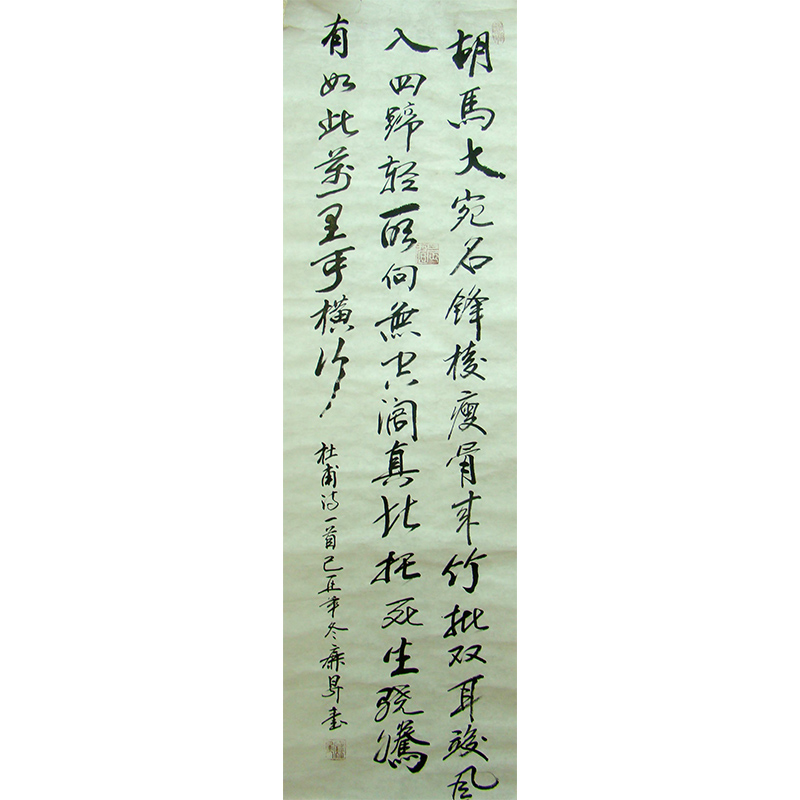 胡馬大宛名鋒棱瘦骨成竹批双耳峻风
入四蹄轻所向無空阔真堪托死生骁騰
有如此萬里可橫行
杜甫诗一首己丑年冬廉昇书